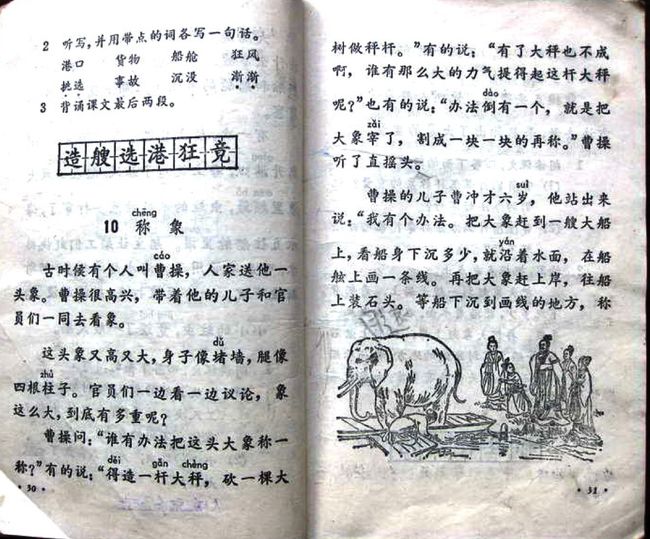 2 听写,并用带点的词各写一句话。
港口 货物 船舱 狂风
挑选 事故 沉没 渐渐
3 背诵课文最后两段。
造艘选港狂竟
chēng
10 称象
cáo
古时侯有个人叫曹操,人家送他一
头象。曹操很高兴,带着他的儿子和官
员们一同去看象。
dǔ
这头象又高又大,身子像堵墙,腿像
zhù
四根柱子。官员们一边看一边议论,象
这么大,到底有多重呢?
曹操问:“谁有办法把这头大象称一
děi gǎn chèng
称?”有的说:“得造一杆大秤,砍一棵大
·30·
树做秤杆。”有的说:“有了大秤也不成
啊,谁有那么大的力气提得起这杆大秤
dào
呢?”也有的说:“办法倒有一个,就是把
zǎi
大象宰了,割成一块一块的再称。”曹操
听了直摇头。
suì
曹操的儿子曹冲才六岁,他站出来
说:“我有个办法。把大象赶到一艘大船
yán
上,看船身下沉多少,就沿着水面,在船
舷上画一条线。再把大象赶上岸,往船
上装石头。等船下沉到画线的地方,称
·31·